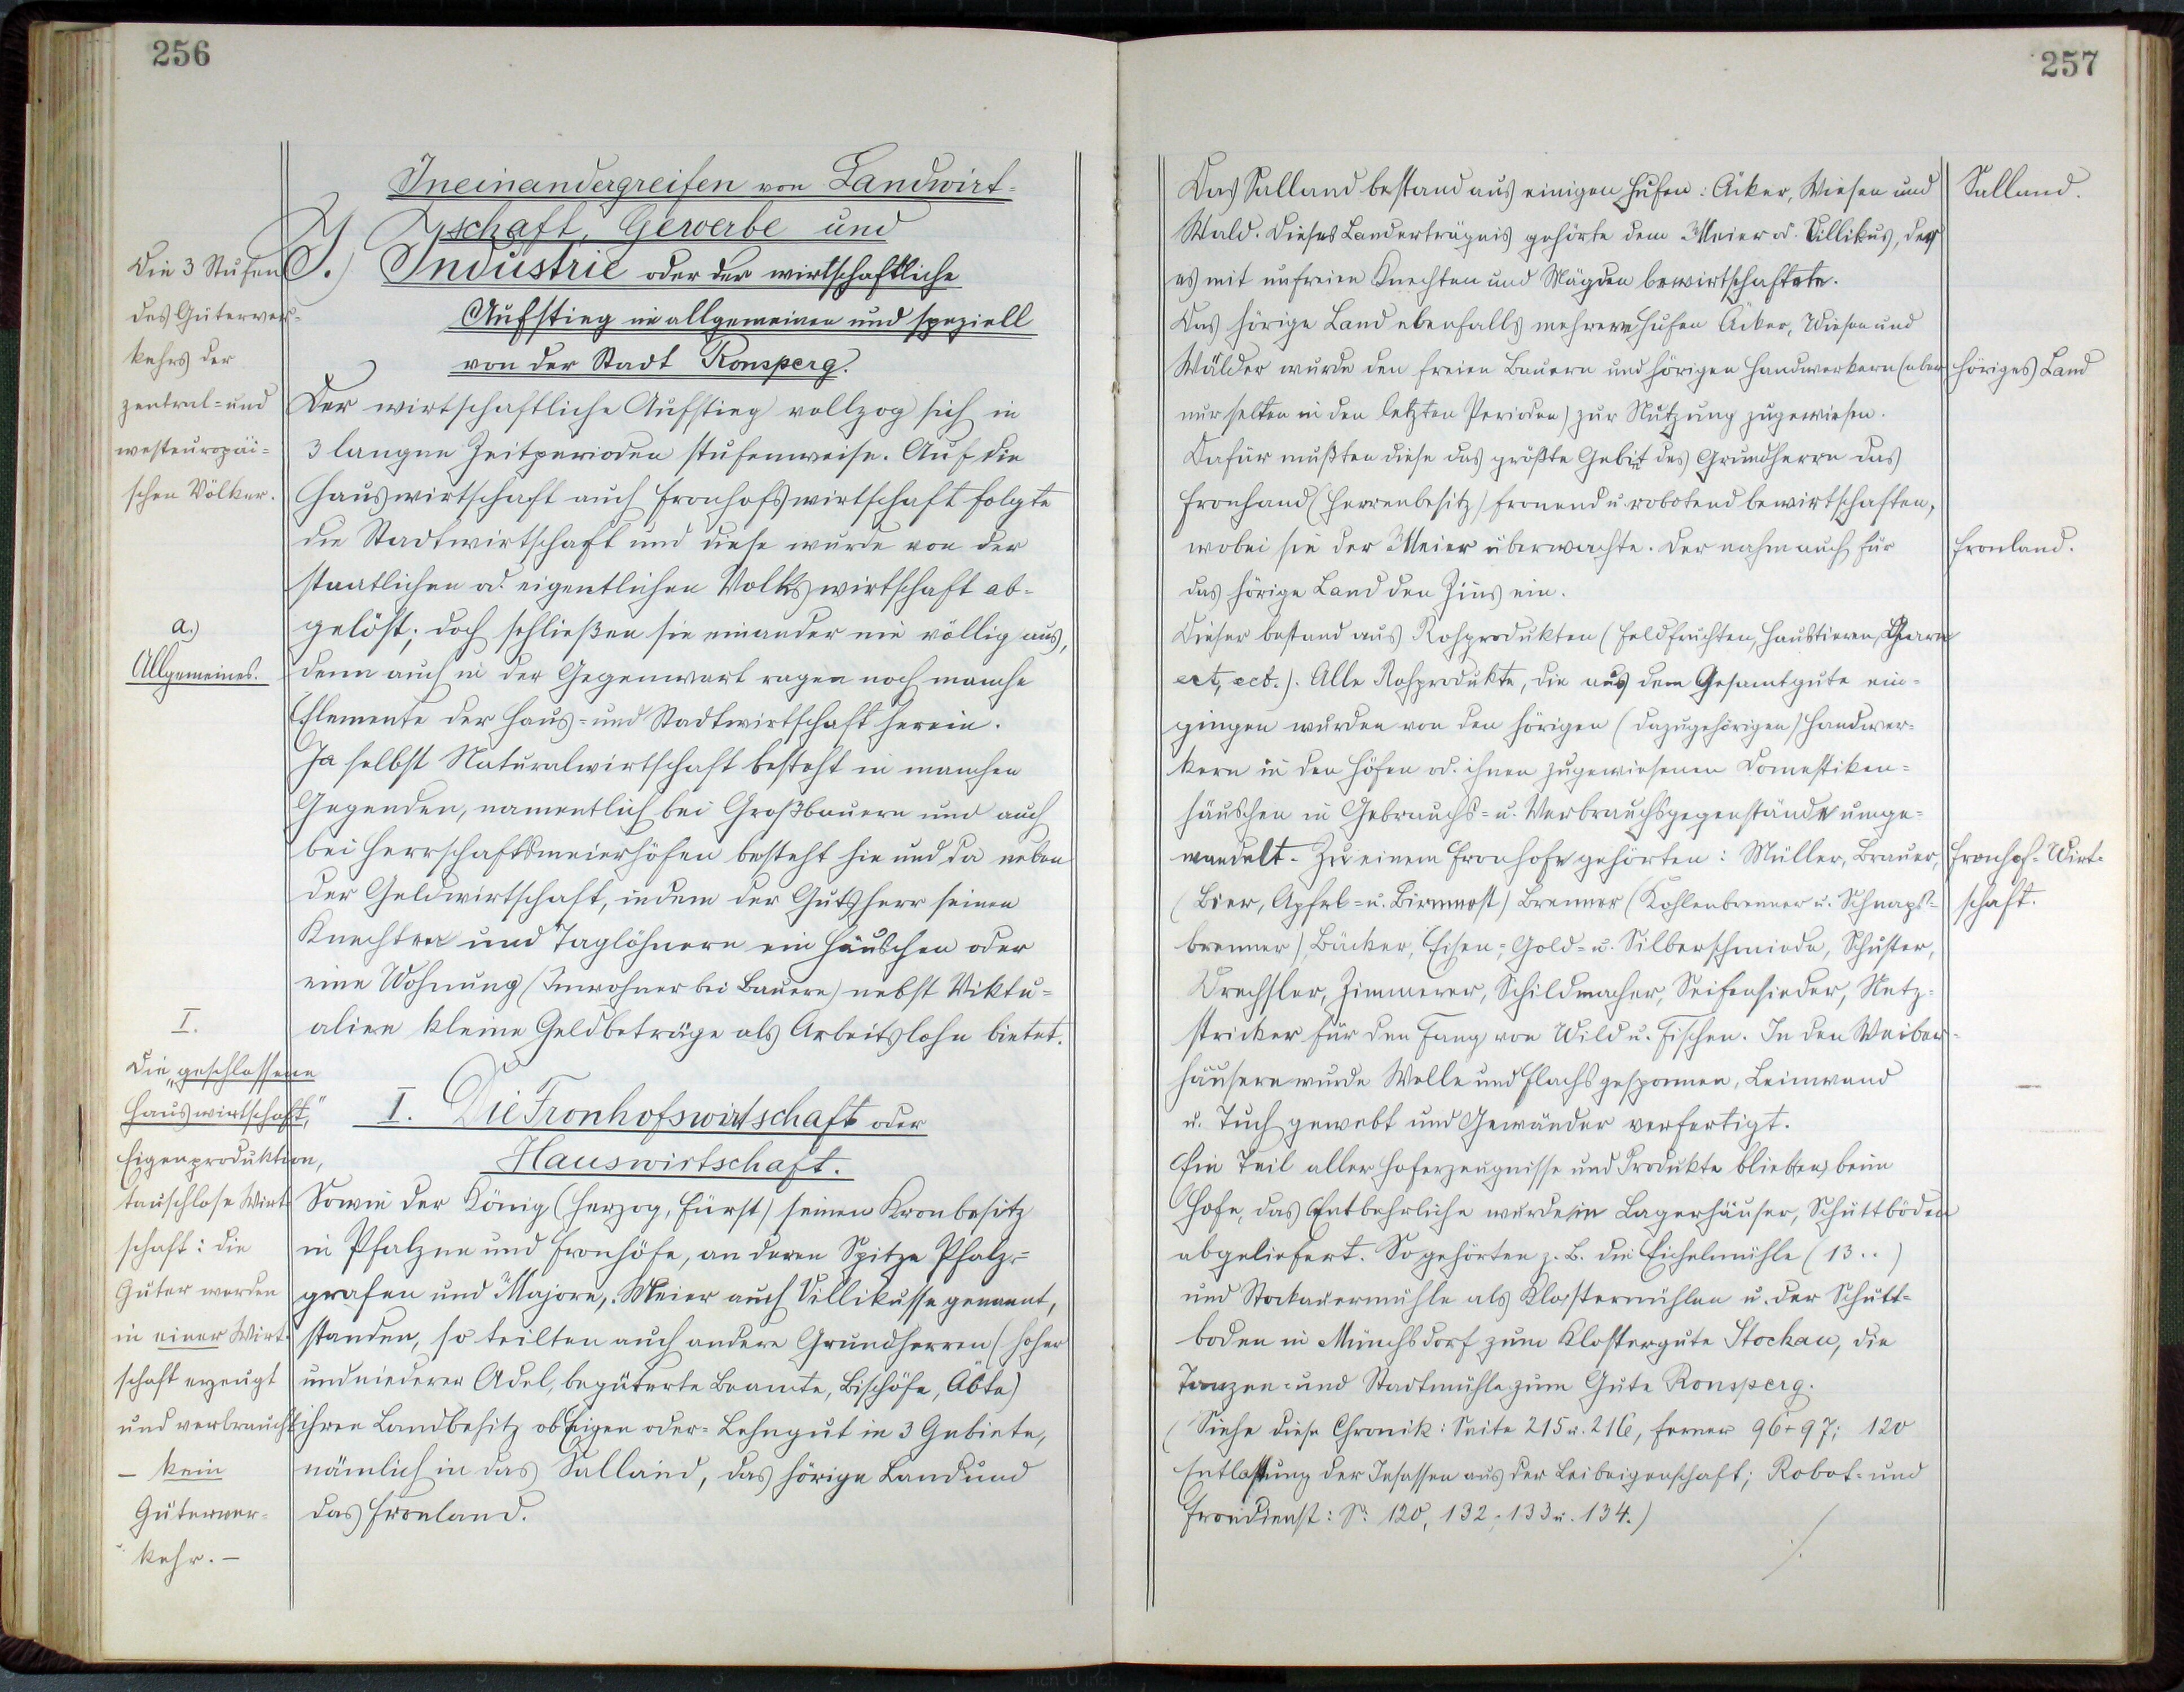 256
Ineinandergreifen von Landwirt-
schaft, Gewerbe und
J.) Industrie oder der wirtschaftliche
Aufstieg im allgemeinen und speziell
von der Stadt Ronsperg.
Die 3 Stufen
des Güterver-
kehrs der
zentral- und
westeuropäi-
schen Völker.
Der wirtschaftliche Aufstieg vollzog sich in
3 langen Zeitperioden stufenweise. Auf die
Hauswirtschaft auch Fronhofswirtschaft folgte
die Stadtwirtschaft und diese wurde von der
staatlichen od. eigentlichen Volkswirtschaft ab-
gelöst; doch schließen sie einander nie völlig aus,
denn auch in der Gegenwart ragen noch manche
Elemente der Haus- und Stadtwirtschaft herein.
Ja selbst Naturalwirtschaft besteht in manchen
Gegenden, namentlich bei Großbauern und auch
bei Herrschaftsmeierhöfen besteht hie und da neben
der Geldwirtschaft, indem der Gutsherr seinen
Knechten und Taglöhnern ein Häuschen oder
eine Wohnung (Inwohner bei Bauern) nebst Viktu-
alien kleine Geldbeträge als Arbeitslohn bietet.
a.)
Allgemeines.
I. Die Fronhofswirtschaft oder
Hauswirtschaft.
I.
Die "geschlossene
Hauswirtschaft,"
Eigenproduktion,
tauschlose Wirt-
schaft: die
Güter werden
in einer Wirt-
schaft erzeugt
und verbraucht
- kein
Güterver-
kehr. -
Sowie der König (Herzog, Fürst) seinen Kronbesitz
in Pfalzen und Fronhöfe, an deren Spitze Pfalz-
grafen und Majore, Meier auch Villikusse genannt,
standen, so teilten auch andere Grundherren (hoher
und niederer Adel, begüterte Beamte, Bischöfe, Äbte)
ihren Landbesitz ob Eigen oder- Lehngut in 3 Gebiete,
nämlich in das Salland, das hörige Land und
das Fronland.
257
Das Salland bestand aus einigen Hufen: Äcker, Wiesen und
Wald. Dieses Landerträgnis gehörte dem Meier od. Villikus, der
es mit unfreien Knechten und Mägden bewirtschaftete.
Das hörige Land ebenfalls mehrere Hufen Äcker, Wiesen und
Wälder wurde den freien Bauern und hörigen Handwerkern (aber
nur selten in den letzten Perioden) zur Nutzung zugewiesen.
Dafür mußten diese das größte Gebiet des Grundherrn das
Fronhand (Herrenbesitz) fronend u. robotend bewirtschaften,
wobei sie der Meier überwachte. Der nahm auch für
das hörige Land den Zins ein.
Dieser bestand aus Rohprodukten (Feldfrüchten, Haustieren, Garn
ect, ect.). Alle Rohprodukte, die aus dem Gesamtgute ein-
gingen wurden von den hörigen (dazugehörigen) Handwer-
kern in den Höfen od. ihnen zugewiesenen Domestiken-
häuschen in Gebrauchs- u. Verbrauchsgegenstände umge-
wandelt. Zu einem Fronhofe gehörten: Müller, Brauer,
(Bier, Apfel- u. Birnmost) Brenner (Kohlenbrenner u. Schnaps-
brenner), Bäcker, Eisen-, Gold- u. Silberschmiede, Schuster,
Drechsler, Zimmerer, Schildmacher, Seifensieder, Netz-
stricker für den Fang von Wild u. Fischen. In den Weiber-
häusern wurde Wolle und Flachs gesponnen, Leinwand
u. Tuch gewebt und Gewänder verfertigt.
Ein Teil aller Hoferzeugnisse und Produkte blieben beim
Hofe, das Entbehrliche wurde in Lagerhäuser, Schüttböden
abgeliefert. So gehörten z. B. die Eichelmühle (13..)
und Stockauermühle als Klostermühlen u. der Schütt-
boden in Münchsdorf zum Klostergute Stockau, die
Tanzen- und Stadtmühle zum Gute Ronsperg.
(Siehe diese Chronik: Seite 215 u. 216, ferner 96+97; 120
Entlassung der Insassen aus der Leibeigenschaft; Robot- und
Frondienst: S: 120, 132-133 u. 134.)
./.
Salland.
höriges Land
Fronland.
Fronhof-Wirt-
schaft.